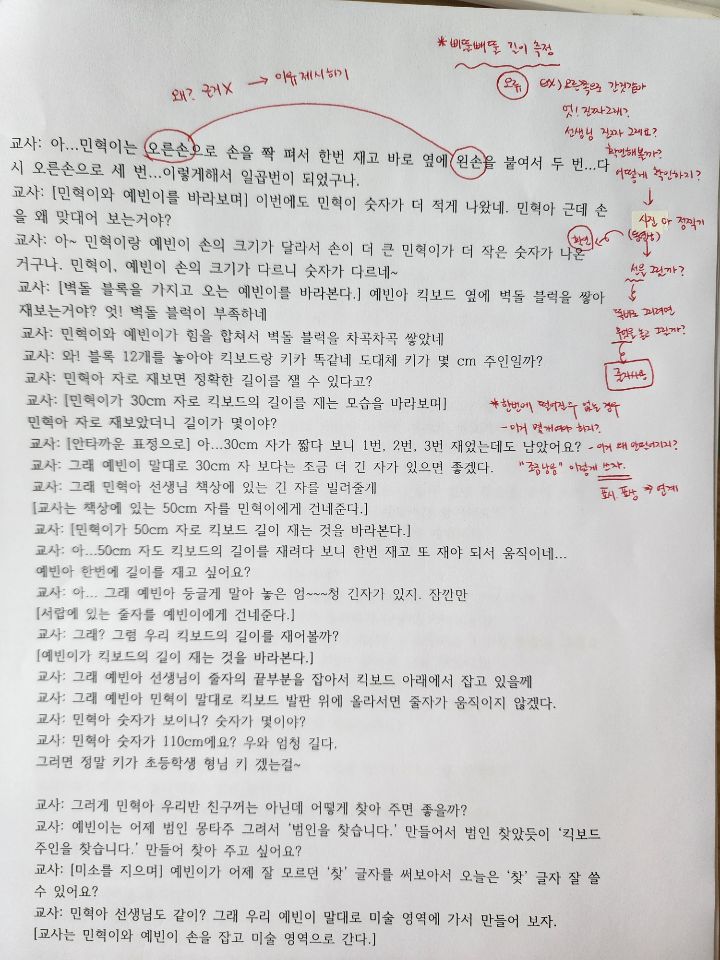 *삐뚤빼뚤 길이 측정
왜? 근거X → 이유제시하기
오류 ex) 오른쪽으로 간것같아
엇! 진짜그래?
선생님 진짜 그래요?
확인해볼까?
어떻게 확인하지?
교사: 아...민혁이는 오른손으로 손을 쫙 펴서 한번 재고 바로 옆에 왼손을 붙여서 두 번...다
시 오른손으로 세 번...이렇게해서 일곱번이 되었구나.
교사: [민혁이와 예빈이를 바라보며] 이번에도 민혁이 숫자가 더 적게 나왔네. 민혁아 근데 손
을 왜 맞대어 보는거야?
사진
확인
교사: 아~ 민혁이랑 예빈이 손의 크기가 달라서 손이 더 큰 민혁이가 더 작은 숫자가 나온
거구나. 민혁이, 예빈이 손의 크기가 다르니 숫자가 다르네~
선을 그릴까?
교사: [벽돌 블록을 가지고 오는 예빈이를 바라본다.] 예빈아 킥보드 옆에 벽돌 블럭을 쌓아
재보는거야? 엇! 벽돌 블럭이 부족하네
똑바로 그리려면
놓고 그릴까?
교사: 민혁이와 예빈이가 힘을 합쳐서 벽돌 블럭을 차곡차곡 쌓았네
교사: 와! 블록 12개를 놓아야 킥보드랑 키가 똑같네 도대체 키가 몇 cm 주인일까?
줄자사용
교사: 민혁아 자로 재보면 정확한 길이를 잴 수 있다고?
교사: [민혁이가 30cm 자로 킥보드의 길이를 재는 모습을 바라보며]
*한번에 떨어질수 없는 경우
민혁아 자로 재보았더니 길이가 몇이야?
- 이거 몇개여야 하지?
교사: [안타까운 표정으로] 아...30cm 자가 짧다 보니 1번, 2번, 3번 재었는데도 남았어요?
- 이거 왜 안떨어지지?
교사: 그래 예빈이 말대로 30cm 자 보다는 조금 더 긴 자가 있으면 좋겠다.
"조금남음" 이렇게 쓰자.
교사: 그래 민혁아 선생님 책상에 있는 긴 자를 빌려줄게
표시, 표상 → 연계
[교사는 책상에 있는 50cm 자를 민혁이에게 건네준다.]
교사: [민혁이가 50cm 자로 킥보드 길이 재는 것을 바라본다.]
교사: 아...50cm 자도 킥보드의 길이를 재려다 보니 한번 재고 또 재야 되서 움직이네...
예빈아 한번에 길이를 재고 싶어요?
교사: 아... 그래 예빈아 둥글게 말아 놓은 엄~~~청 긴자가 있지. 잠깐만
[서랍에 있는 줄자를 예빈이에게 건네준다.]
교사: 그래? 그럼 우리 킥보드의 길이를 재어볼까?
[예빈이가 킥보드의 길이 재는 것을 바라본다.]
교사: 그래 예빈아 선생님이 줄자의 끝부분을 잡아서 킥보드 아래에서 잡고 있을께
교사: 그래 예빈아 민혁이 말대로 킥보드 발판 위에 올라서면 줄자가 움직이지 않겠다.
교사: 민혁아 숫자가 보이니? 숫자가 몇이야?
교사: 민혁아 숫자가 110cm에요? 우와 엄청 길다.
그러면 정말 키가 초등학생 형님 키 겠는걸~
교사: 그러게 민혁아 우리반 친구꺼는 아닌데 어떻게 찾아 주면 좋을까?
교사: 예빈이는 어제 범인 몽타주 그려서 '범인을 찾습니다.' 만들어서 범인 찾았듯이 '킥보드
주인을 찾습니다.' 만들어 찾아 주고 싶어요?
교사: [미소를 지으며] 예빈이가 어제 잘 모르던 '찾' 글자를 써보아서 오늘은 '찾' 글자 잘 쓸
수 있어요?
교사: 민혁아 선생님도 같이? 그래 우리 예빈이 말대로 미술 영역에 가서 만들어 보자.
[교사는 민혁이와 예빈이 손을 잡고 미술 영역으로 간다.]